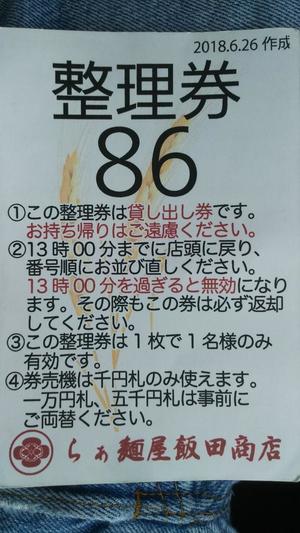 2018.6.26 作成
整理券
86
①この整理券は貸し出し券です。
お持ち帰りはご遠慮ください。
②13時00分までに店頭に戻り、
番号順にお並び直しください。
13時00分を過ぎると無効になり
ます。その際もこの券は必ず返却
してください。
③この整理券は1枚で1名様のみ
有効です。
④券売機は千円札のみ使えます。
一万円札、五千円札は事前に
ご両替ください。
らぁ麺屋飯田商店